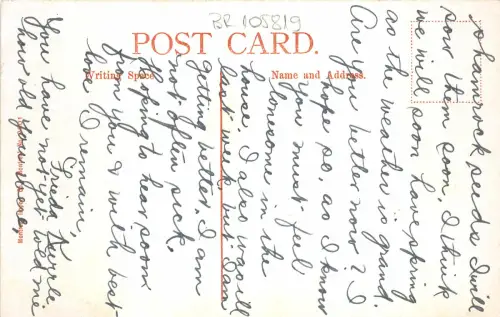 BR 105819
POST CARD.
Writing Space
Name and Address.
shamrock seeds. I will
sow them soon. I think
we will soon have spring
as the weather is grand.
Are you better now? I
hope so, as I know
you must feel
lonesome in the
house. I also was ill
last week, but I am
getting better. I am
not often sick.
Hoping to hear soon
from you & with best
love I remain,
Freda
You have not yet told me
how old you were.